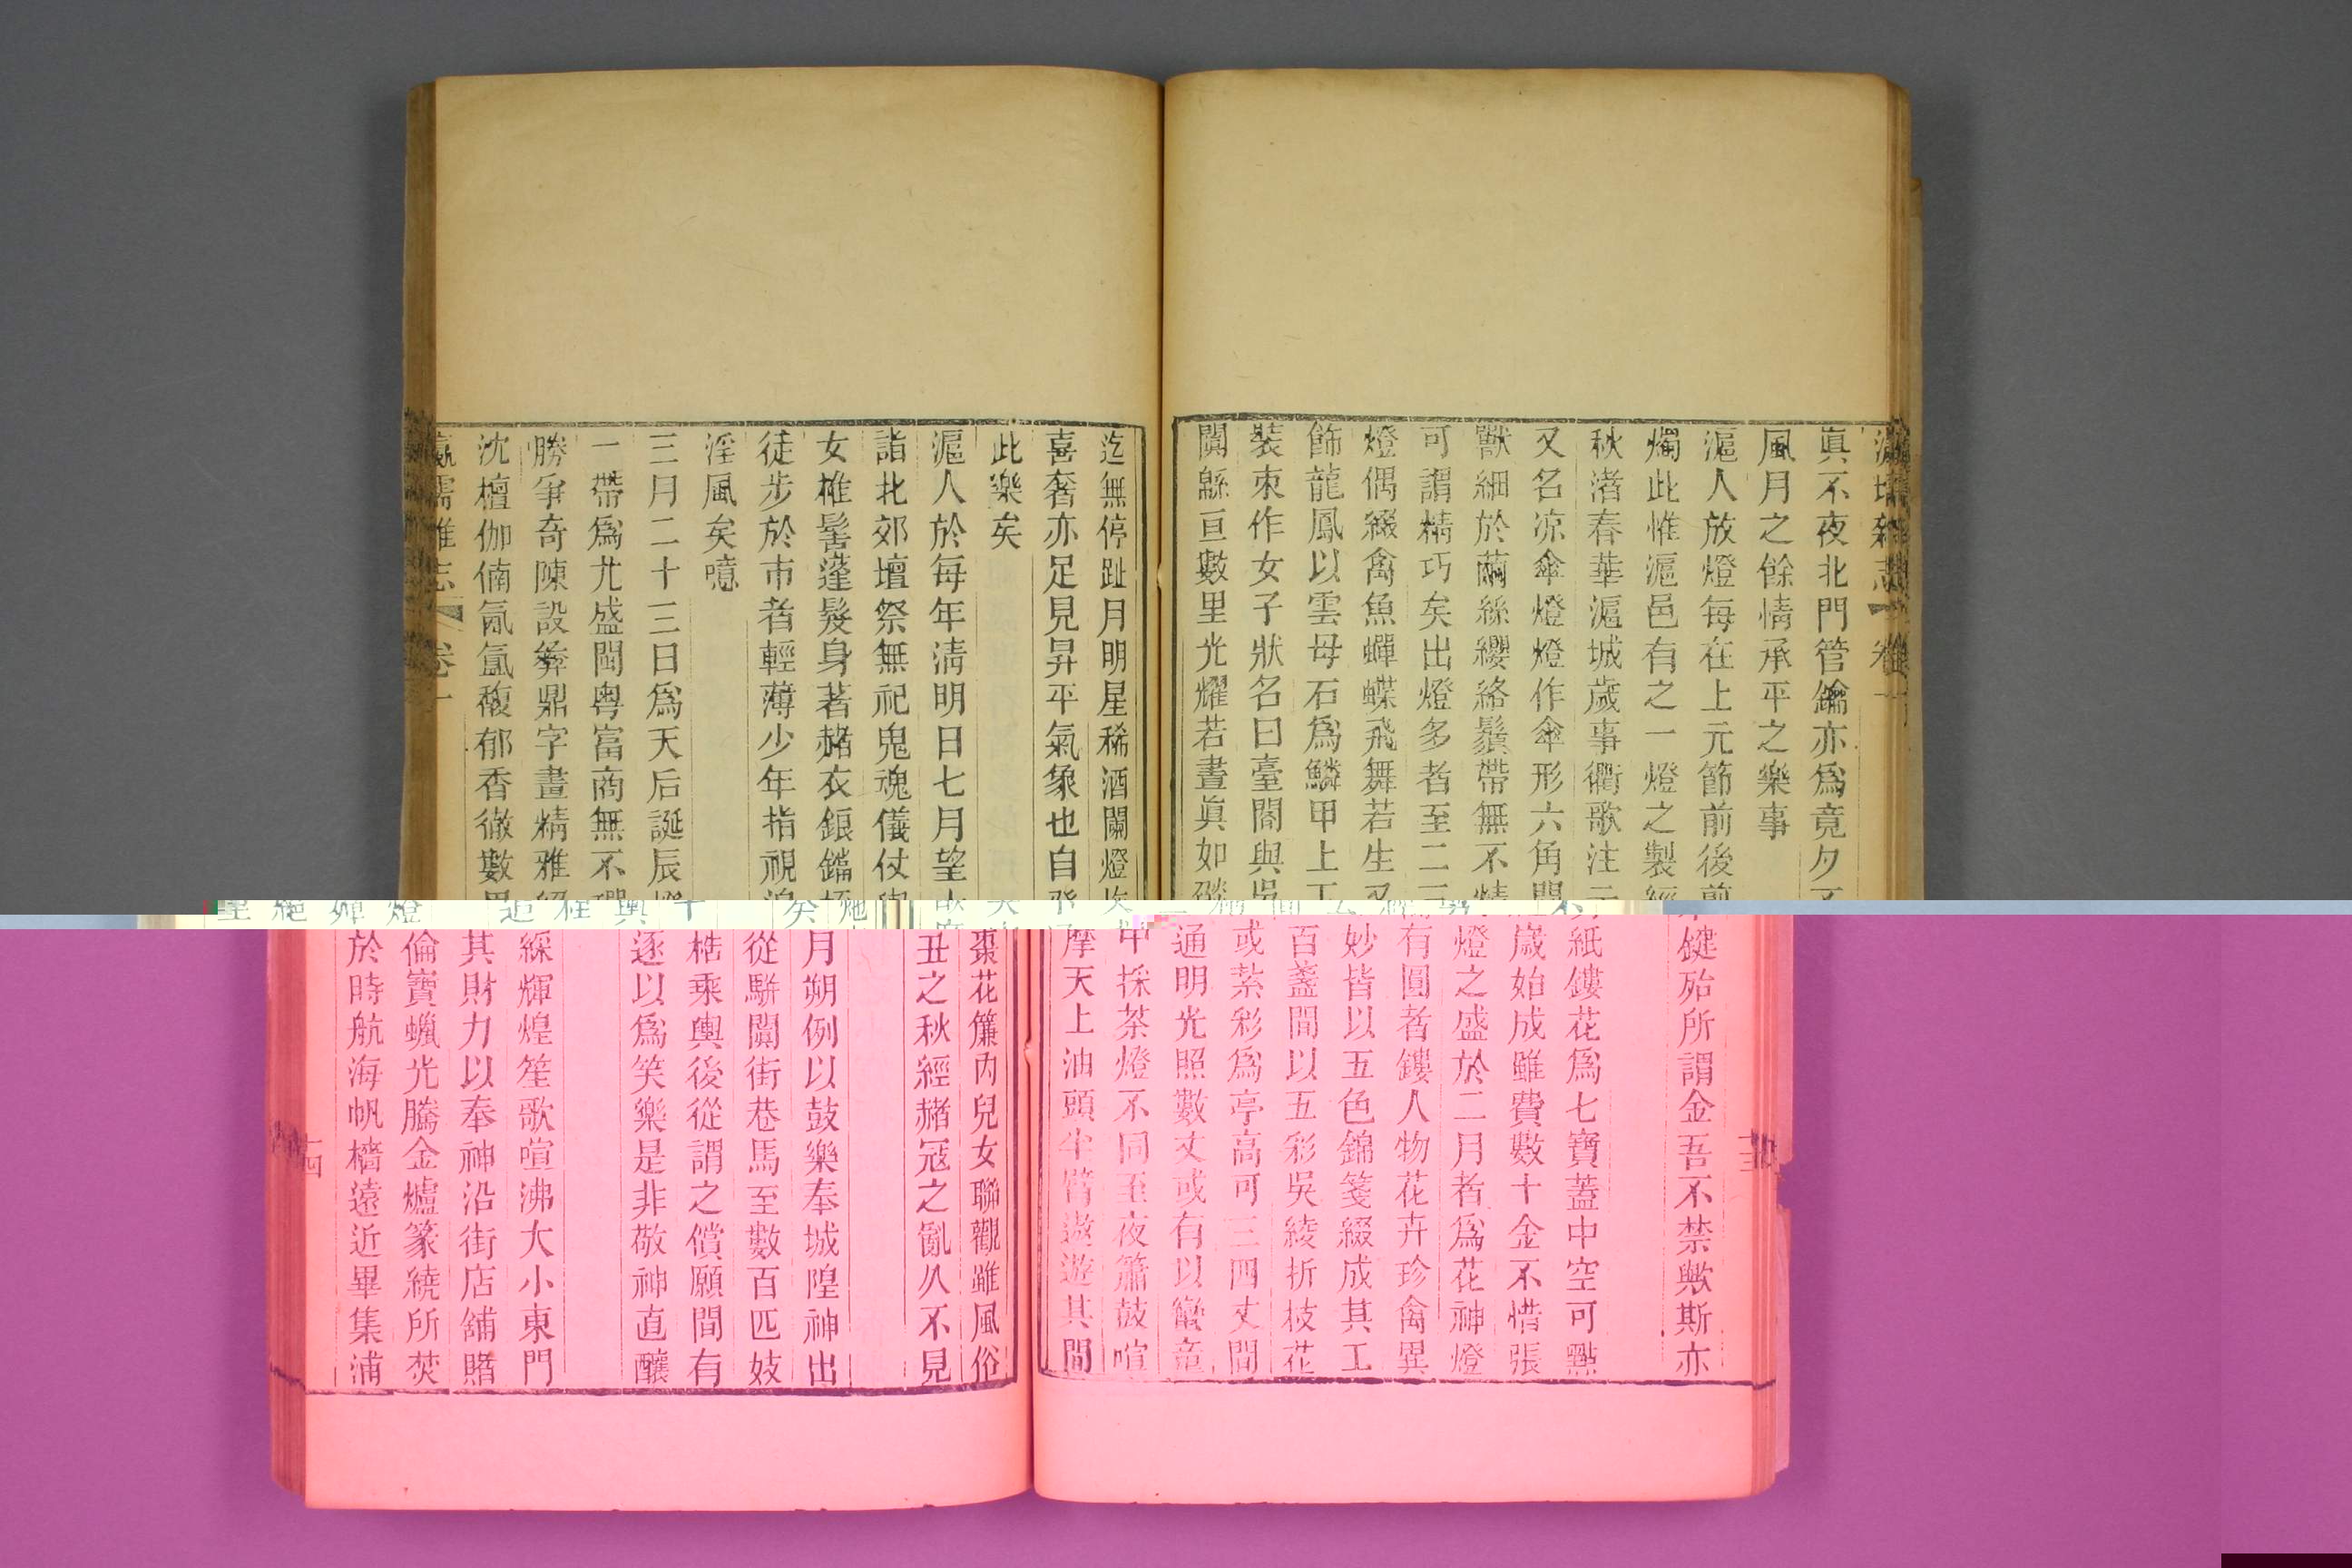 瀛壖雜志 卷一
眞不夜北門管鑰亦爲竟夕不鍵殆所謂金吾不禁歟斯亦
風月之餘情承平之樂事
滬人放燈每在上元節前後剪紙鏤花爲七寶蓋中空可㸃
燭此惟滬邑有之一燈之製經歲始成雖費數十金不惜張
秋渚春華滬城歲事衢歌注云燈之盛於二月者爲花神燈
又名凉傘燈燈作傘形六角間有圓者鏤人物花卉珍禽異
獸細於繭絲纓絡鬚帶無不精妙皆以五色錦箋綴成其工
可謂精巧矣出燈多者至二三百盞間以五彩吳綾折枝花
燈偶綴禽魚蟬蝶飛舞若生又或紮彩爲亭高可三四丈間
飾龍鳳以雲母石爲鱗甲上下通明光照數丈或有以孌童
裝束作女子狀名曰臺閣與吳中採茶燈不同至夜簫鼓喧
闐緜亘數里光耀若晝眞如燄摩天上油頭半臂遨遊其間
迄無停趾月明星稀酒闌燈炧棗花簾內兒女聯觀雖風俗
喜奢亦足見昇平氣象也自癸丑之秋經赭冦之亂久不見
此樂矣
滬人於每年淸明日七月望十月朔例以鼓樂奉城隍神出
詣北郊壇祭無祀鬼魂儀仗輿從駢闐街巷馬至數百匹妓
女椎髻蓬髮身著赭衣鋃鐺桎梏乘輿後從謂之償願間有
徒步於市者輕薄少年指視追逐以爲笑樂是非敬神直釀
淫風矣噫
三月二十三日爲天后誕辰燈綵輝煌笙歌喧沸大小東門
一帶爲尤盛閩粤富商無不殫其財力以奉神沿街店舖賭
勝爭奇陳設彝鼎字畫精雅絕倫寶蠟光騰金爐篆繞所焚
沈檀伽俑氤氳馥郁香徹數里於時航海帆檣遠近畢集浦
瀛壖雜志 卷一 十四